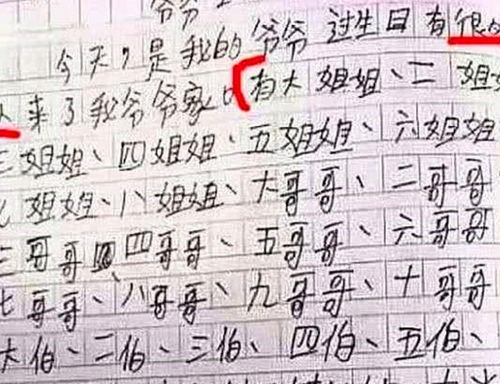 爷爷
今天,是我的爷爷过生日有很
人来了我爷爷家。有大姐姐、二姐
三姐姐、四姐姐、五姐姐、六姐姐
七姐姐、八姐姐、大哥哥、二哥哥
三哥哥、四哥哥、五哥哥、六哥哥
七哥哥、八哥哥、九哥哥、十哥哥
大伯、二伯、三伯、四伯、五伯、